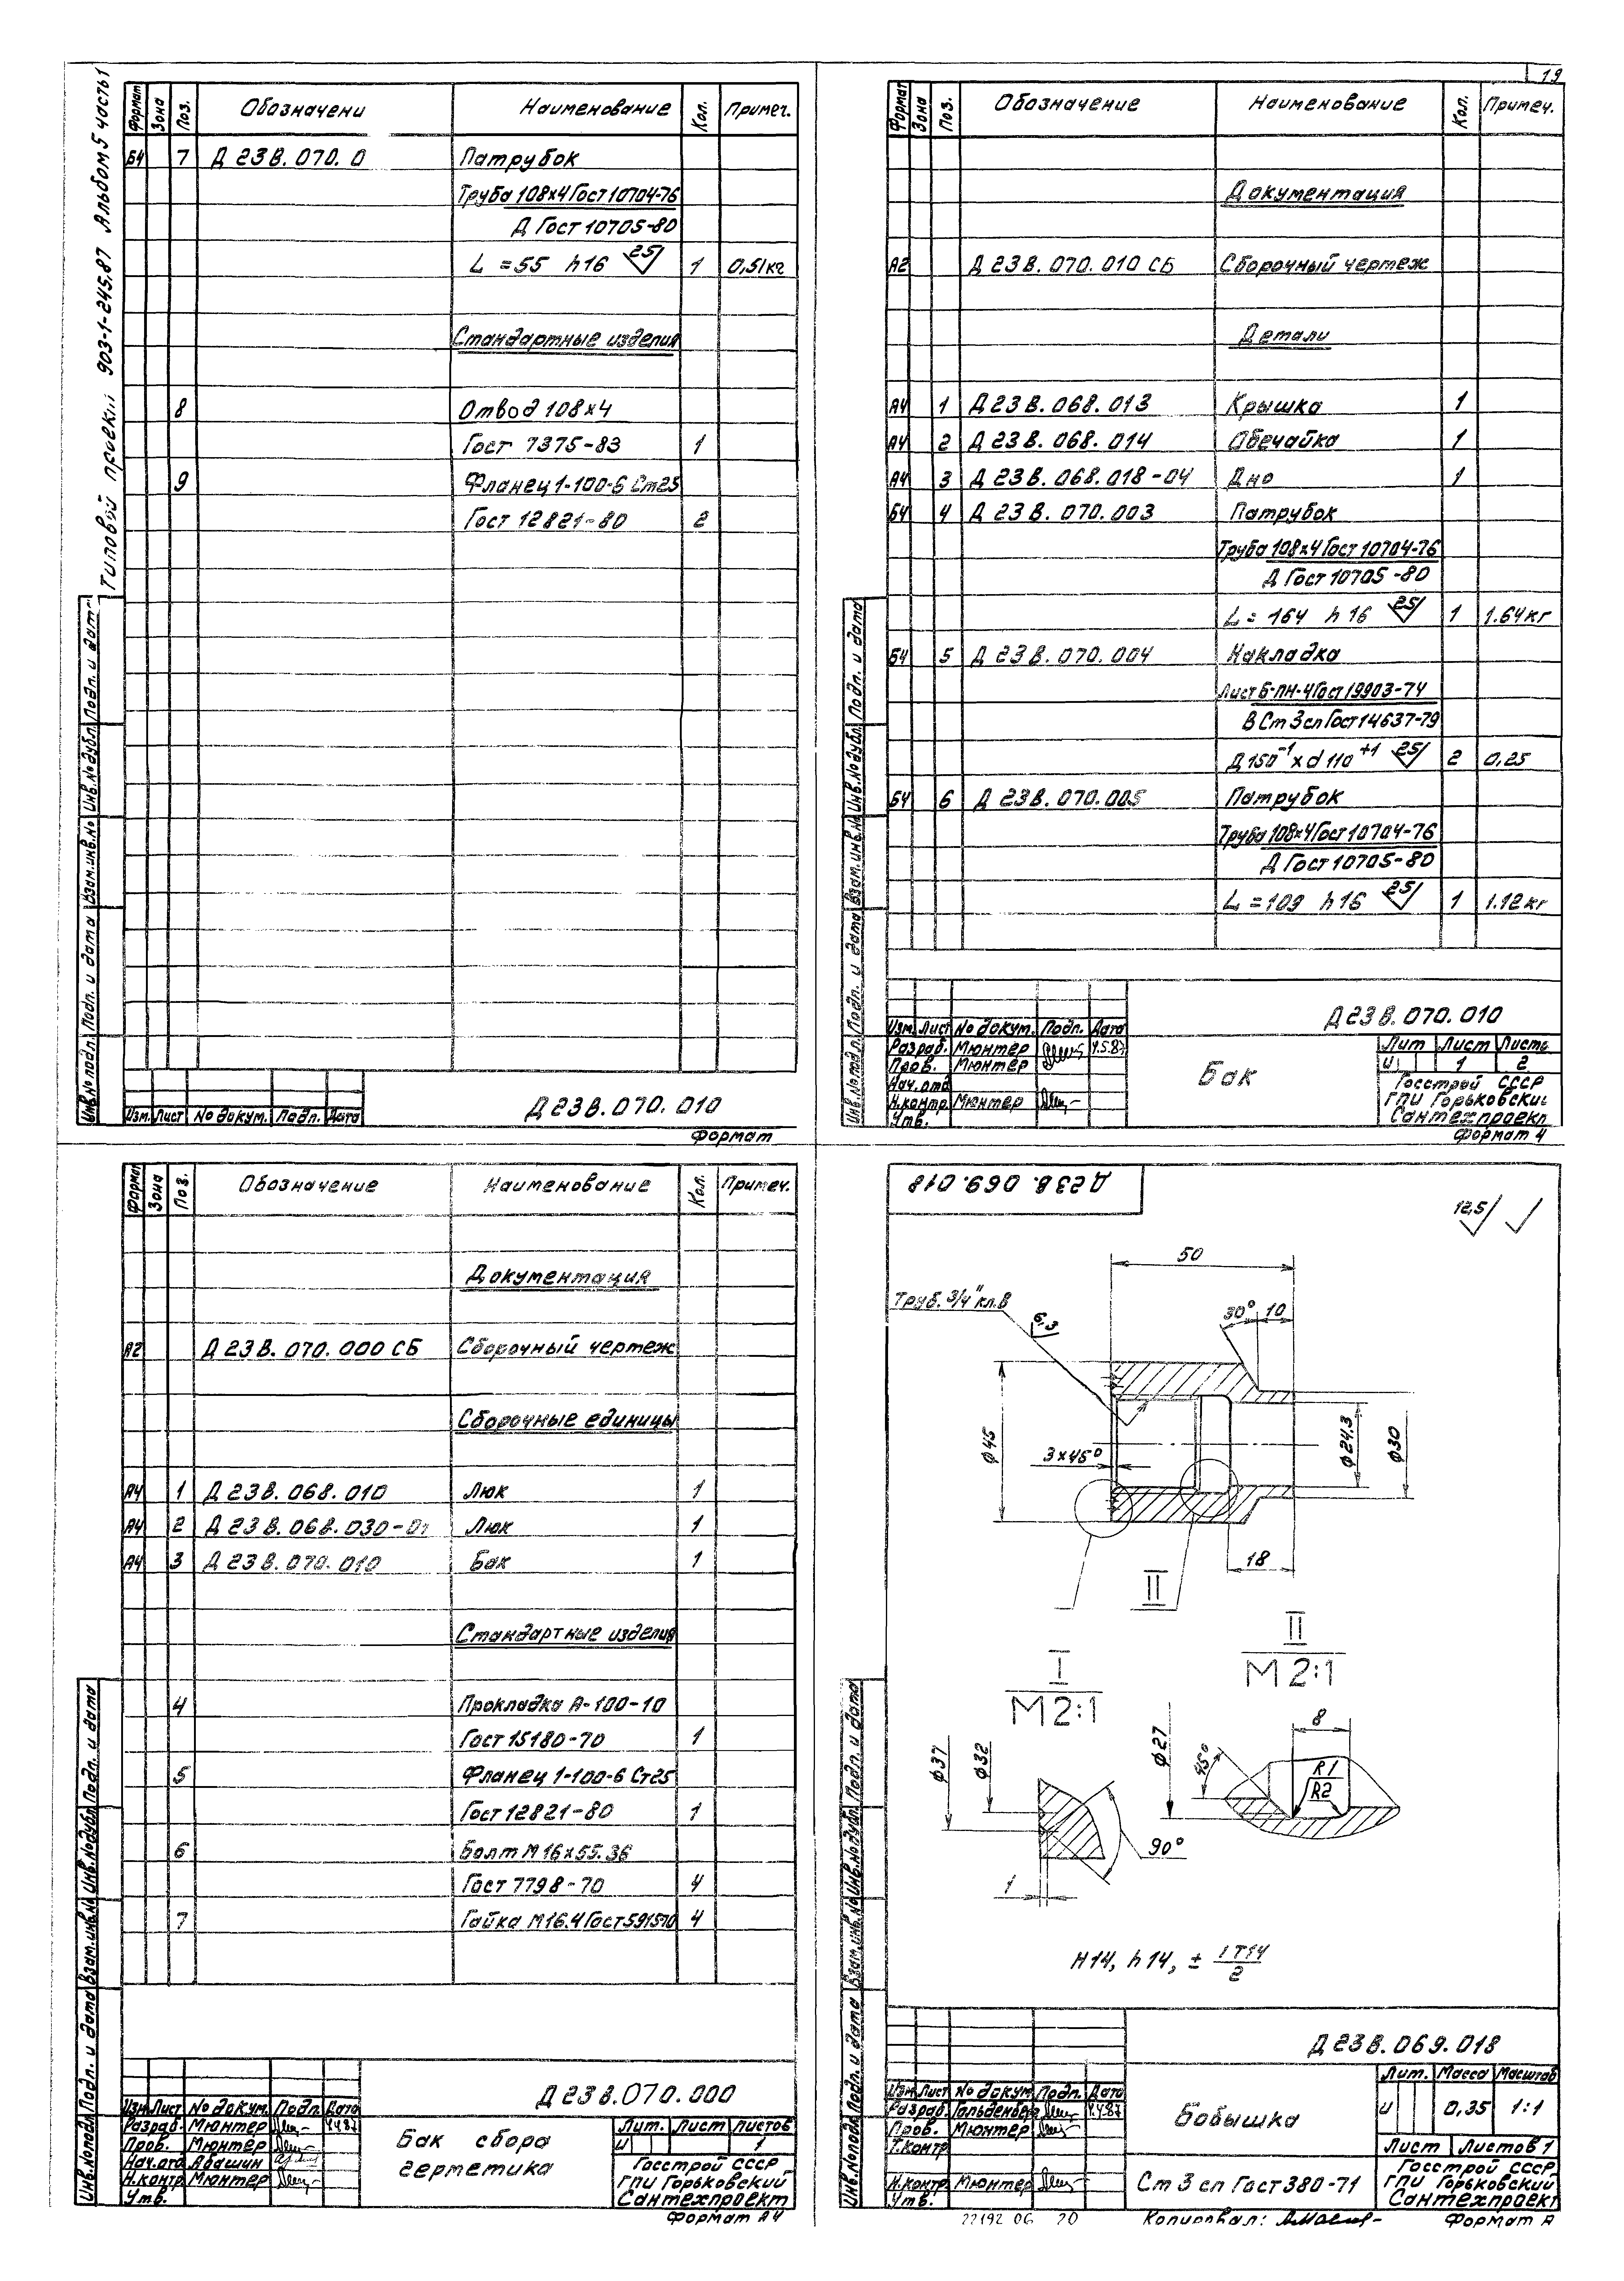 19
Типовой проект 903-1-245.87 Альбом 5 часть 1
Формат Зона Поз. Обозначени Наименование Кол. Примеч.
Б4 7 Д 23В.070.0 Патрубок
Труба 108х4 Гост 10704-76
Д Гост 10705-80
L = 55 h16 25 1 0,51кг
Стандартные изделия
8 Отвод 108х4
Гост 7375-83 1
9 Фланец 1-100-6 Ст25
Гост 12821-80 2
Инв.№ подл. Подп. и дата Взам.инв.№ Инв.№ дубл. Подп. и дата
Изм. Лист № докум. Подп. Дата
Д 23В.070.010
Формат
Формат Зона Поз. Обозначение Наименование Кол. Примеч.
Документация
А2 Д 23В.070.010 СБ Сборочный чертеж
Детали
А4 1 Д 23В.068.013 Крышка 1
А4 2 Д 23В.068.014 Обечайка 1
А4 3 Д 23В.068.018-04 Дно 1
Б4 4 Д 23В.070.003 Патрубок
Труба 108х4 Гост 10704-76
Д Гост 10705-80
L = 164 h16 25 1 1.64кг
Б4 5 Д 23В.070.004 Накладка
Лист Б-ПН-4 Гост 19903-74
В Ст 3сп Гост 14637-79
Д150⁻¹ х d 110⁺¹ 25 2 0,25
Б4 6 Д 23В.070.005 Патрубок
Труба 108х4 Гост 10704-76
Д Гост 10705-80
L = 109 h16 25 1 1.12кг
Инв.№ подл. Подп. и дата Взам.инв.№ Инв.№ дубл. Подп. и дата
Д 23В.070.010
Изм. Лист № докум. Подп. Дата
Разраб. Мюнтер 4.5.87
Пров. Мюнтер
Нач.отд
Н.контр. Мюнтер
Утв.
Бак
Лит Лист Листо
и 1 2
Госстрой СССР
ГПИ Горьковский
Сантехпроект
Формат 4
Формат Зона Поз. Обозначение Наименование Кол. Примеч.
Документация
А2 Д 23В.070.000 СБ Сборочный чертеж
Сборочные единицы
А4 1 Д 23В.068.010 Люк 1
А4 2 Д 23В.068.030-01 Люк 1
А4 3 Д 23В.070.010 Бак 1
Стандартные изделия
4 Прокладка А-100-10
Гост 15180-70 1
5 Фланец 1-100-6 Ст25
Гост 12821-80 1
6 Болт М16х55.36
Гост 7798-70 4
7 Гайка М16.4 Гост 591570 4
Инв.№ подл. Подп. и дата Взам.инв.№ Инв.№ дубл. Подп. и дата
Д 23В.070.000
Изм. Лист № докум. Подп. Дата
Разраб. Мюнтер 4.4.87
Пров. Мюнтер
Нач.отд Авашин
Н.контр Мюнтер
Утв.
Бак сбора
герметика
Лит. Лист Листов
и 1
Госстрой СССР
ГПИ Горьковский
Сантехпроект
Формат А4
Д 23В.069.018
12,5
50
Труб. 3/4" кл.В
6,3
30° 10
ф45
3х45°
ф24,3
ф30
18
II
I
М 2:1
II
М 2:1
ф37
ф32
90°
1
ф27
45°
8
R1
R2
Н14, h14, ± IT14/2
Инв.№ подл. Подп. и дата Взам.инв.№ Инв.№ дубл. Подп. и дата
Д 23В.069.018
Изм Лист № докум. Подп. Дата
Разраб. Гольденберг 4.4.87
Пров. Мюнтер
Т.контр
Н.контр. Мюнтер
Утв.
Бобышка
Лит. Масса Масштаб
и 0,35 1:1
Лист Листов 1
Ст 3 сп Гост 380-71
Госстрой СССР
ГПИ Горьковский
Сантехпроект
22192 06 20
Копировал:
Формат А